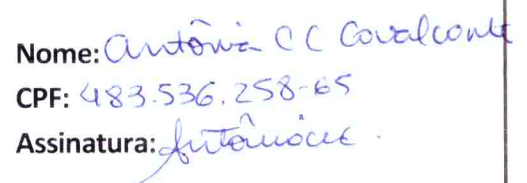 Nome: Antônia C C Cavalcante
CPF: 483.536.258-65
Assinatura: Antônia